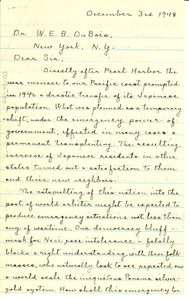 December 3rd 1948
Dr. W. E. B. DuBois,
New York, N.Y.
Dear Sir:
Directly after Pearl Harbor the
war menace to our Pacific coast prompted
in 1942 a drastic transfer of its Japanese
population. What was planned as a temporary
shift, under the emergency power of
government, effected in many cases a
permanent transplanting. The resulting
increase of Japanese residents in other
states turned out a satisfaction to them
and their new neighbors.
The catapulting of this nation into the
post of world arbiter might be expected to
produce emergency situations not less than
any of wartime. Our democracy bluff -
mask for Nazi race intolerance - fatally
blocks a right understanding with these folk
masses, who naturally look to see repeated on
a world scale the iniquitous Panama silver-
gold system. How shall this emergency be